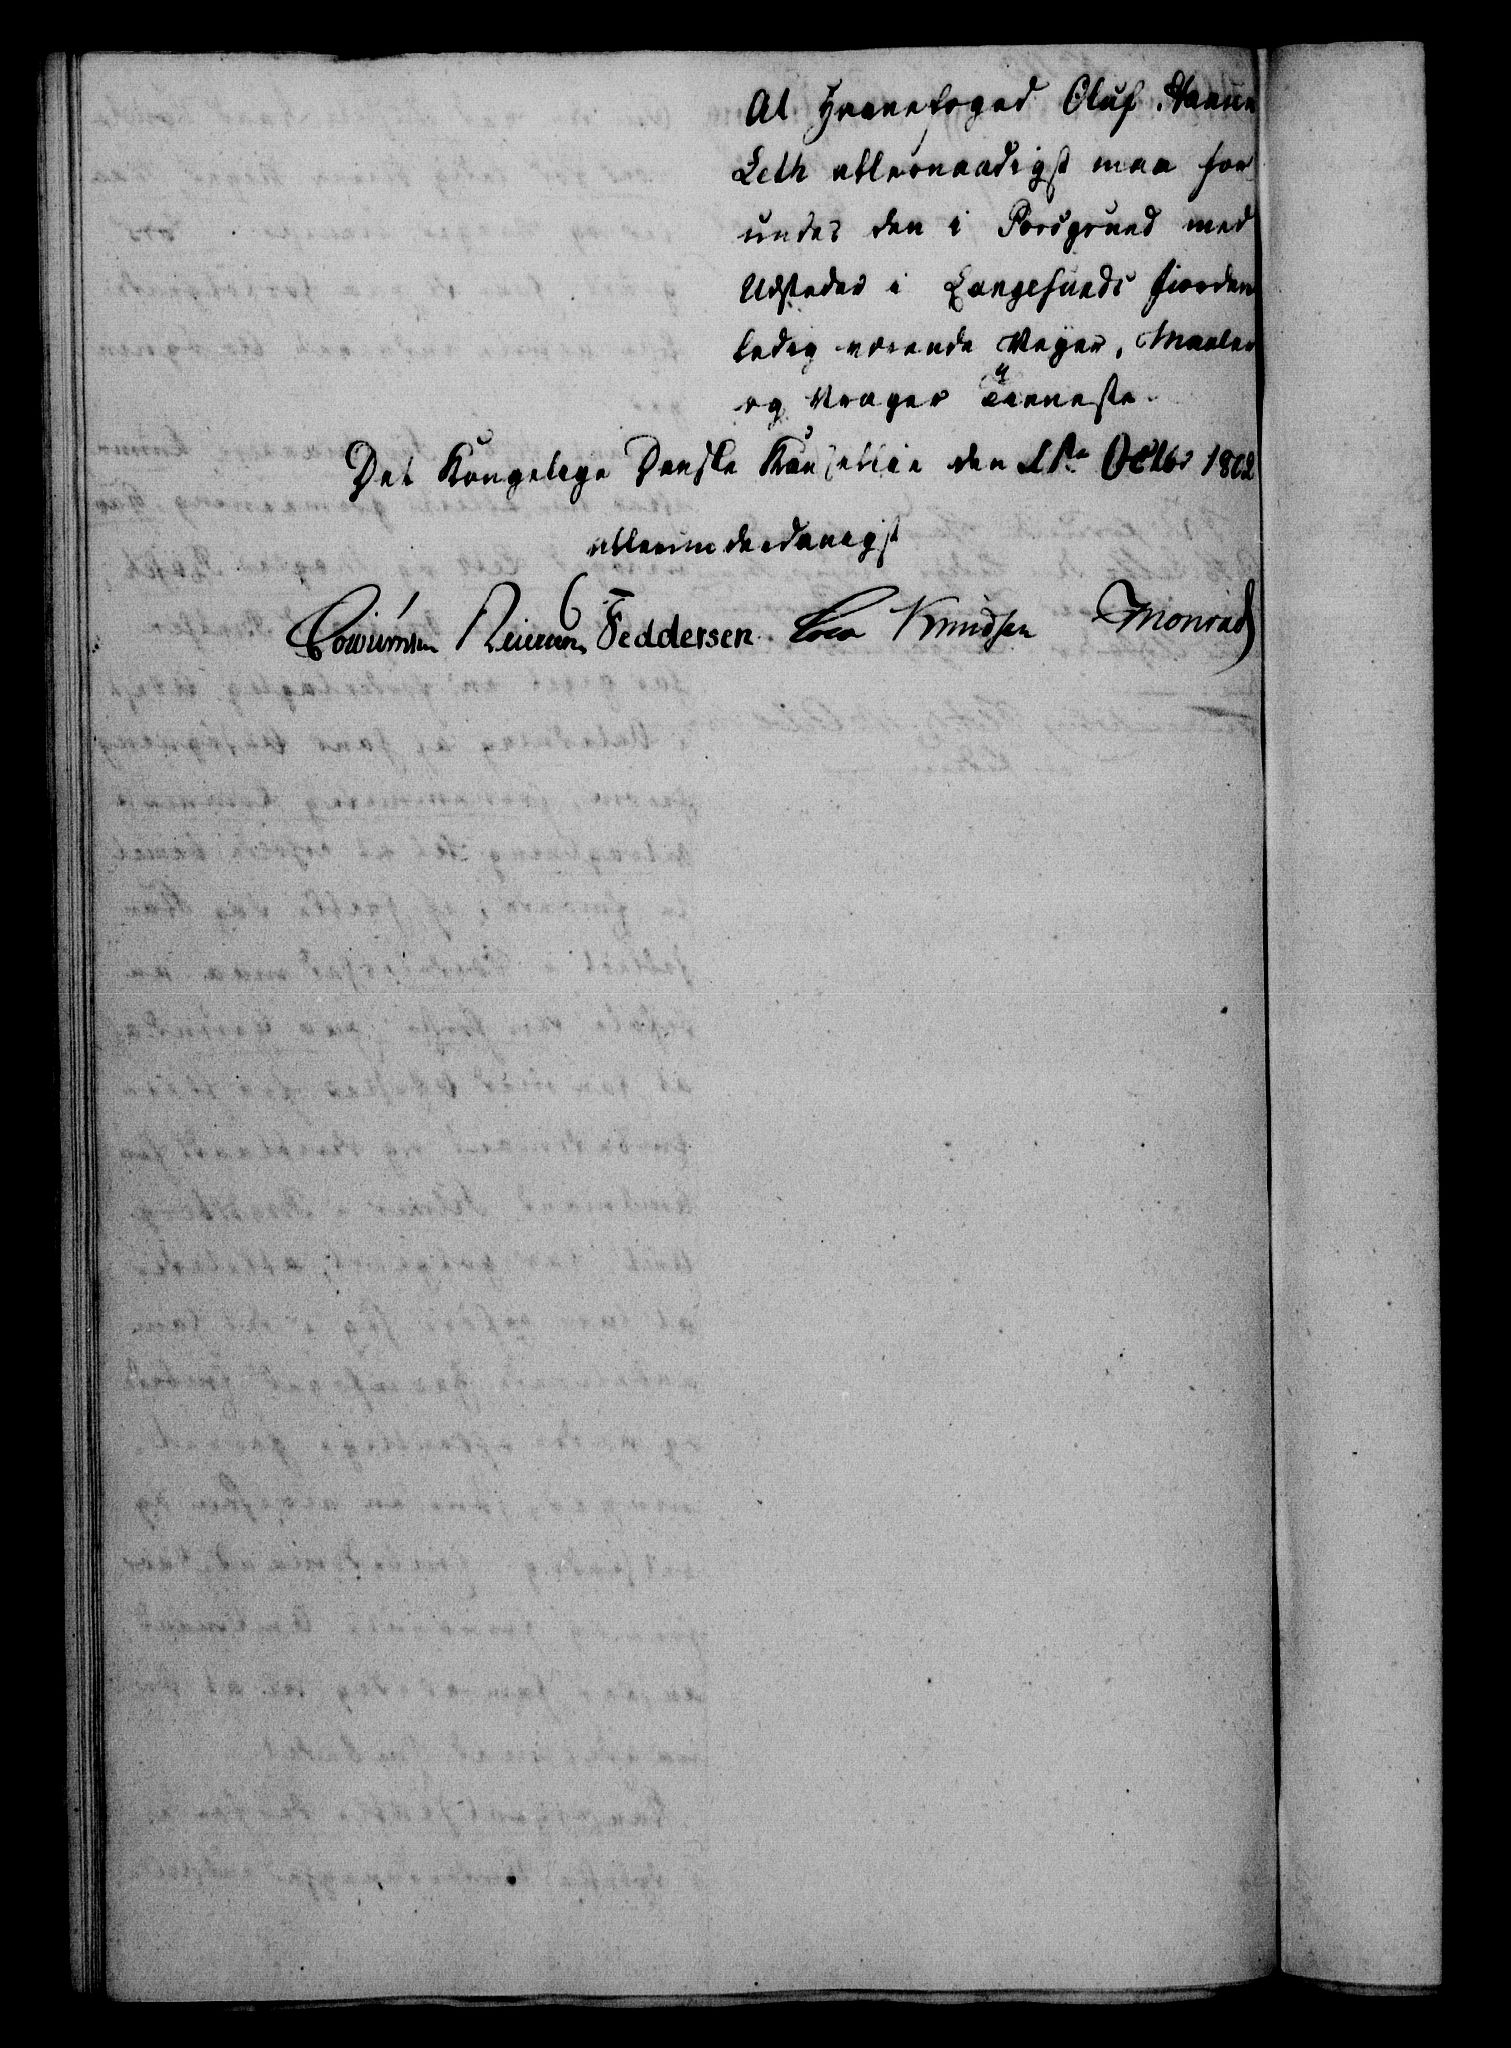 At Havnefoged Oluf
Leth allernaadigst maa for
undes den i Porsgrund med
Udsteder i Langesunds fiorden
ledig værende Veyer, Maaler
og Vrager Tieneste.
Det Kongelige Danske Kancellie den 1ste Octbr 1802
allerunderdanigst
Feddersen Knudsen Monrad